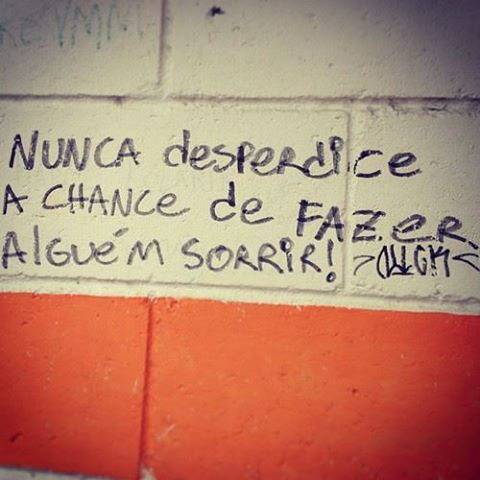 NUNCA desperdice
A CHANCE de FAZER.
AlGuém SORRIR!